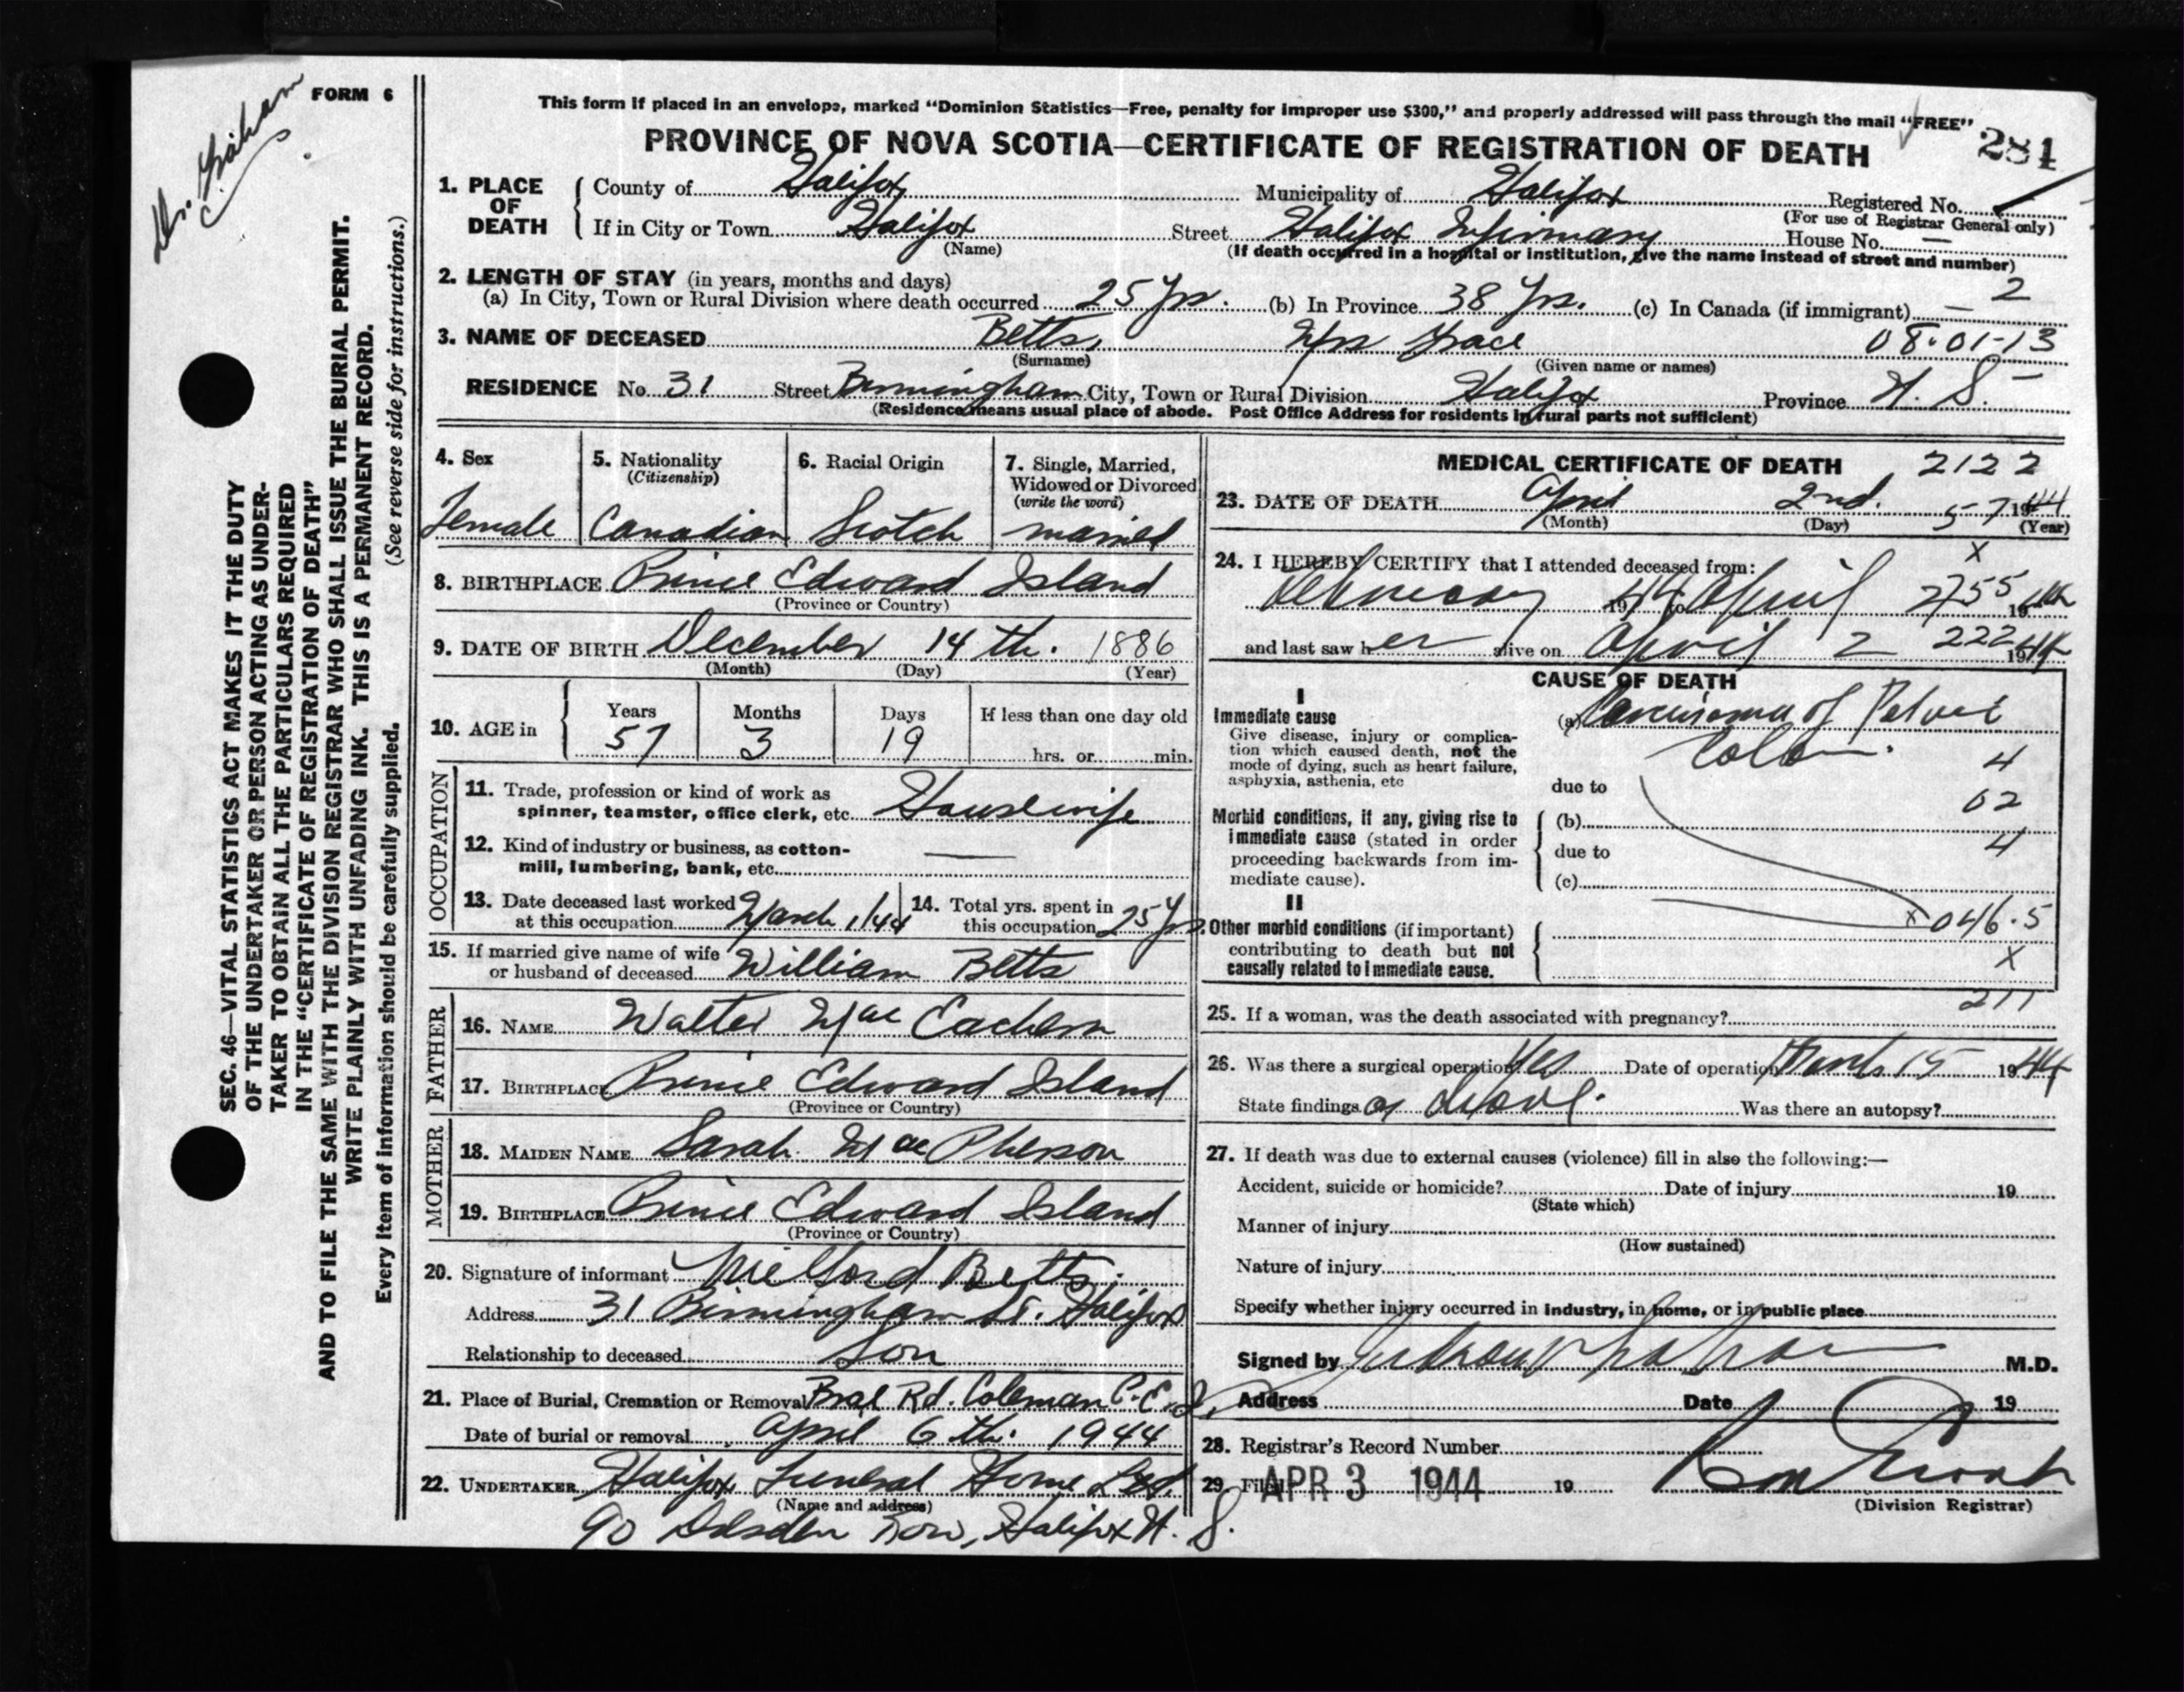 Dr. Graham
FORM 6
SEC. 46—VITAL STATISTICS ACT MAKES IT THE DUTY
OF THE UNDERTAKER OR PERSON ACTING AS UNDER-
TAKER TO OBTAIN ALL THE PARTICULARS REQUIRED
IN THE "CERTIFICATE OF REGISTRATION OF DEATH"
AND TO FILE THE SAME WITH THE DIVISION REGISTRAR WHO SHALL ISSUE THE BURIAL PERMIT.
WRITE PLAINLY WITH UNFADING INK. THIS IS A PERMANENT RECORD.
Every item of information should be carefully supplied. (See reverse side for instructions.)
This form if placed in an envelope, marked "Dominion Statistics—Free, penalty for improper use $300," and properly addressed will pass through the mail "FREE"
PROVINCE OF NOVA SCOTIA—CERTIFICATE OF REGISTRATION OF DEATH 281
1. PLACE OF DEATH County of Halifax Municipality of Halifax Registered No.
(For use of Registrar General only)
If in City or Town Halifax Street Halifax Infirmary House No. —
(Name) (If death occurred in a hospital or institution, give the name instead of street and number)
2. LENGTH OF STAY (in years, months and days) 2
(a) In City, Town or Rural Division where death occurred 25 Yrs. (b) In Province 38 Yrs. (c) In Canada (if immigrant) —
3. NAME OF DECEASED Betts, Mrs Grace 08-01-13
(Surname) (Given name or names)
RESIDENCE No. 31 Street Birmingham City, Town or Rural Division Halifax Province N. S. —
(Residence means usual place of abode. Post Office Address for residents in rural parts not sufficient)
4. Sex 5. Nationality 6. Racial Origin 7. Single, Married,
(Citizenship) Widowed or Divorced
(write the word)
Female Canadian Scotch married
8. BIRTHPLACE Prince Edward Island
(Province or Country)
9. DATE OF BIRTH December 14 th. 1886
(Month) (Day) (Year)
10. AGE in Years Months Days If less than one day old
57 3 19 hrs. or min.
OCCUPATION
11. Trade, profession or kind of work as
spinner, teamster, office clerk, etc. Housewife
12. Kind of industry or business, as cotton-
mill, lumbering, bank, etc. —
13. Date deceased last worked 14. Total yrs. spent in
at this occupation March 1/44 this occupation 25 Yrs.
15. If married give name of wife
or husband of deceased William Betts
FATHER
16. NAME Walter MacEachern
17. BIRTHPLACE Prince Edward Island
(Province or Country)
MOTHER
18. MAIDEN NAME Sarah MacPherson
19. BIRTHPLACE Prince Edward Island
(Province or Country)
20. Signature of informant Betts.
Address 31 Birmingham St. Halifax
Relationship to deceased Son
21. Place of Burial, Cremation or Removal Rd. Coleman P.E.I.
Date of burial or removal April 6 th. 1944
22. UNDERTAKER Halifax Funeral Home Ltd.
(Name and address)
90 Dresden Row, Halifax N. S.
MEDICAL CERTIFICATE OF DEATH 2122
23. DATE OF DEATH April 2nd. 57 1944
(Month) (Day) (Year)
24. I HEREBY CERTIFY that I attended deceased from: x
February 1944 to April 2 55 1944
and last saw her alive on April 2 222 1944
CAUSE OF DEATH
I
Immediate cause
Give disease, injury or complica-
tion which caused death, not the
mode of dying, such as heart failure,
asphyxia, asthenia, etc
(a) Carcinoma of Pelvic
Colon. 4
due to 02
Morbid conditions, if any, giving rise to
immediate cause (stated in order
proceeding backwards from im-
mediate cause).
(b)
due to 4
(c)
II
Other morbid conditions (if important)
contributing to death but not
causally related to immediate cause.
x 046.5
x
211
25. If a woman, was the death associated with pregnancy?
26. Was there a surgical operation Yes Date of operation March 15 1944
State findings as above. Was there an autopsy?
27. If death was due to external causes (violence) fill in also the following:—
Accident, suicide or homicide? Date of injury 19
(State which)
Manner of injury
(How sustained)
Nature of injury
Specify whether injury occurred in industry, in home, or in public place
Signed by M.D.
Address Date 19
28. Registrar's Record Number
29. Filed APR 3 1944 19
(Division Registrar)